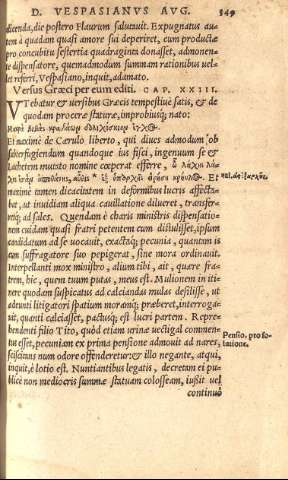 D. VESPASIANVS AVG. 349
dicenda, die postero Flaurum salutauit. Expugnatus au
tem à quadam quasi amore sui deperiret, cum productæ
pro concubitu sestertia quadraginta donasset, admonen-
te dispensatore, quemadmodum summam rationibus uel-
let referri, Vespasiano, inquit, adamato.
Versus Græci per eum editi. CAP. XXIII.
VTebatur & uersibus Græcis tempestiuè satis, & de
quodam proceræ staturæ, improbiusq; nato:
Et maximè de Cærulo liberto, qui diues admodum ob
subterfugiendum quandoque ius fisci, ingenuum se &
Lachetem mutato nomine cœperat efferre,
Et
maximè tamen dicacitatem in deformibus lucris affecta-
bat, ut inuidiam aliqua cauillatione dilueret, transfer-
retq; ad sales. Quendam è charis ministris dispensatio-
nem cuidam quasi fratri petentem cum distulisset, ipsum
candidatum ad se uocauit, exactaq; pecunia, quantum is
cum suffragatore suo pepigerat, sine mora ordinauit.
Interpellanti mox ministro, alium tibi, ait, quære fra-
trem, hic, quem tuum putas, meus est. Mulionem in iti-
nere quodam suspicatus ad calciandas mulas desilisse, ut
adeunti litigatori spatium moramq; præberet, interroga-
uit, quanti calciasset, pactusq; est lucri partem. Repre-
hendenti filio Tito, quòd etiam urinæ uectigal commen-
tus esset, pecuniam ex prima pensione admouit ad nares,
Pensio, pro so-
lutione.
sciscitans num odore offenderetur: & illo negante, atqui,
inquit, è lotio est. Nuntiantibus legatis, decretam ei pu-
blicè non mediocris summæ statuam colosseam, iussit uel
continuò